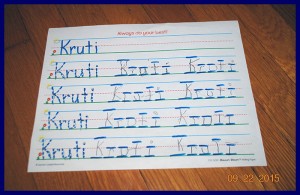 Always do your best!
Kruti
Kruti Kruti Kruti
Kruti Kruti Kruti
Kruti Kruti Kruti
Kruti Kruti Kruti
09 22 2015